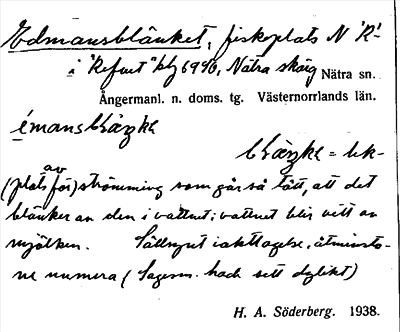 Edmansblänket, fiskeplats N "R"
i "Refnet" kbl 6940, Nätra skärg Nätra sn.
Ångermanl. n. doms. tg. Västernorrlands län.
émansblänke
blänke = lek-
(plats för) av strömming som går så tätt, att det
blänker av den i vattnet; vattnet blir vitt av
mjölken. Sällsynt iakttagelse, åtminsto-
ne numera (Sagesm. hade sett dylikt)
H. A. Söderberg. 1938.